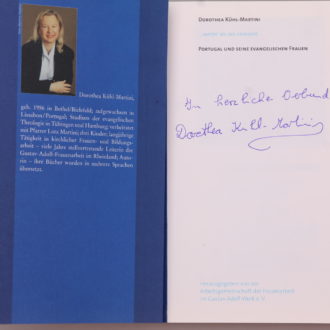 Dorothea Kühl-Martini,
geb. 1956 in Bethel/Bielefeld; aufgewachsen in
Lissabon/Portugal; Studium der evangelischen
Theologie in Tübingen und Hamburg; verheiratet
mit Pfarrer Lutz Martini; drei Kinder; langjährige
Tätigkeit in kirchlicher Frauen- und Bildungs-
arbeit – viele Jahre stellvertretende Leiterin der
Gustav-Adolf-Frauenarbeit im Rheinland; Auto-
rin – ihre Bücher wurden in mehrere Sprachen
übersetzt.
Dorothea Kühl-Martini
Portugal und seine evangelischen Frauen
In herzlicher Verbund
Dorothea Kühl-Martini
Herausgegeben von der
Arbeitsgemeinschaft der Frauenarbeit
im Gustav-Adolf-Werk e.V.